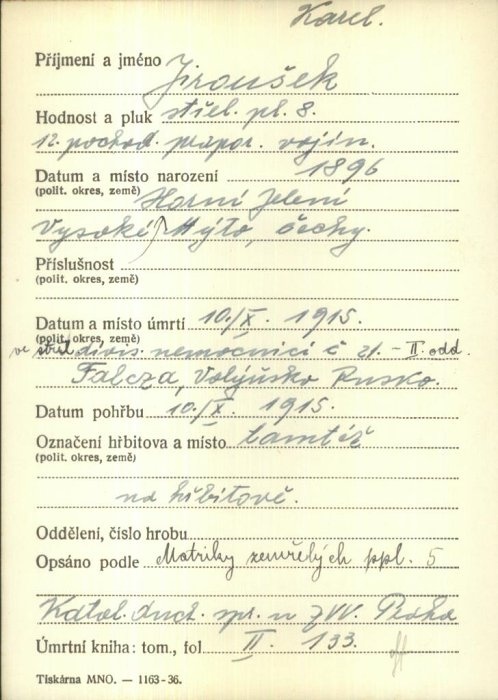 Karel.
Příjmení a jméno Jiroušek
Hodnost a pluk střel. pl. 8.
12. pochod. prapor. vojín.
Datum a místo narození 1896
(polit. okres, země) Horní Jelení
Vysoké Mýto, Čechy.
Příslušnost
(polit. okres, země)
Datum a místo úmrtí 10./X. 1915.
(polit. okres, země)
ve střel. divis. nemocnici č. 21. – II. odd.
Falcza, Volyňsko Rusko.
Datum pohřbu 10./X. 1915.
Označení hřbitova a místo tamtéž
(polit. okres, země)
na hřbitově.
Oddělení, číslo hrobu
Opsáno podle Matriky zemřelých ppl. 5
Katol. duch. spr. u ZVV. Praha
Úmrtní kniha: tom., fol II. 133.
Tiskárna MNO. — 1163-36.